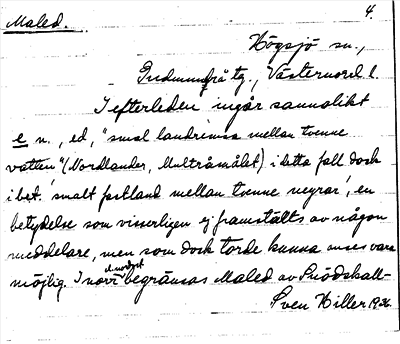 Maled. 4.
Högsjö sn.,
Gudmundrå tg., Västernorrl. l.
I efterleden ingår sannolikt
e n., ed, "smal landremsa mellan tvenne
vatten" (Nordlander, Multråmålet) i detta fall dock
i bet. 'smalt fastland mellan tvenne myrar', en
betydelse som visserligen ej framställts av någon
meddelare, men som dock torde kunna anses vara
möjlig. I norr begränsas Maled av Snödskall-
Sven Hiller 1936